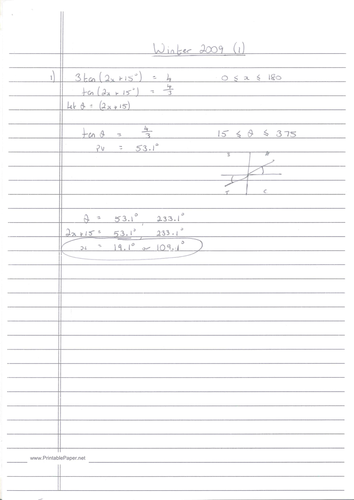 Winter 2009 (1)
1) 3tan(2x+15°) = 4 0 ≤ x ≤ 180
tan(2x+15°) = 4/3
let θ = (2x+15)
tan θ = 4/3 15 ≤ θ ≤ 375
PV = 53.1°
S A
T C
θ = 53.1°, 233.1°
2x+15 = 53.1°, 233.1°
x = 19.1° or 109.1°
www.PrintablePaper.net